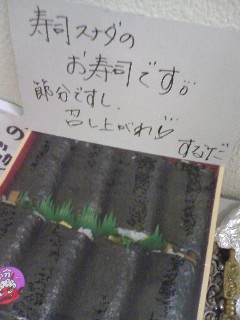 寿司スナダの
お寿司です。
節分ですし
召し上がれ♡
すなだ
の